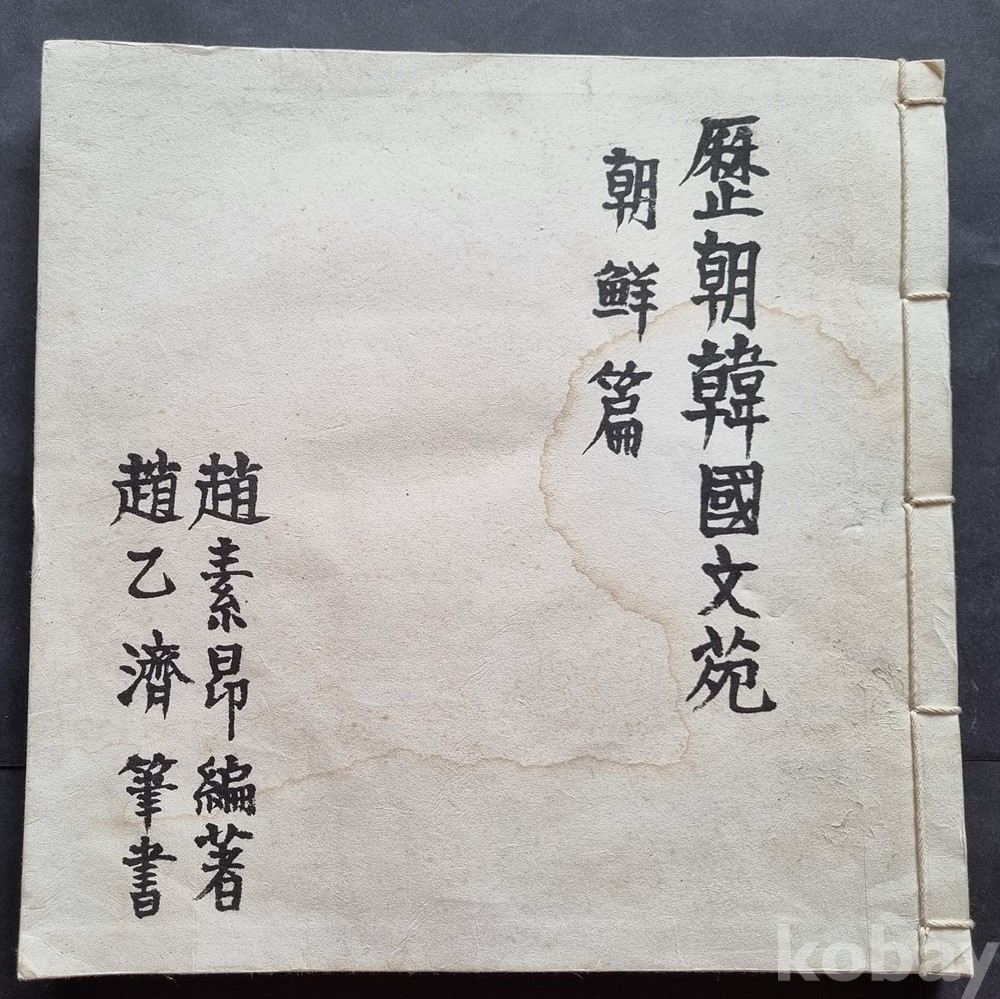 歷朝韓國文苑
朝鮮篇
趙素昂編著
趙乙濟筆書
kobay